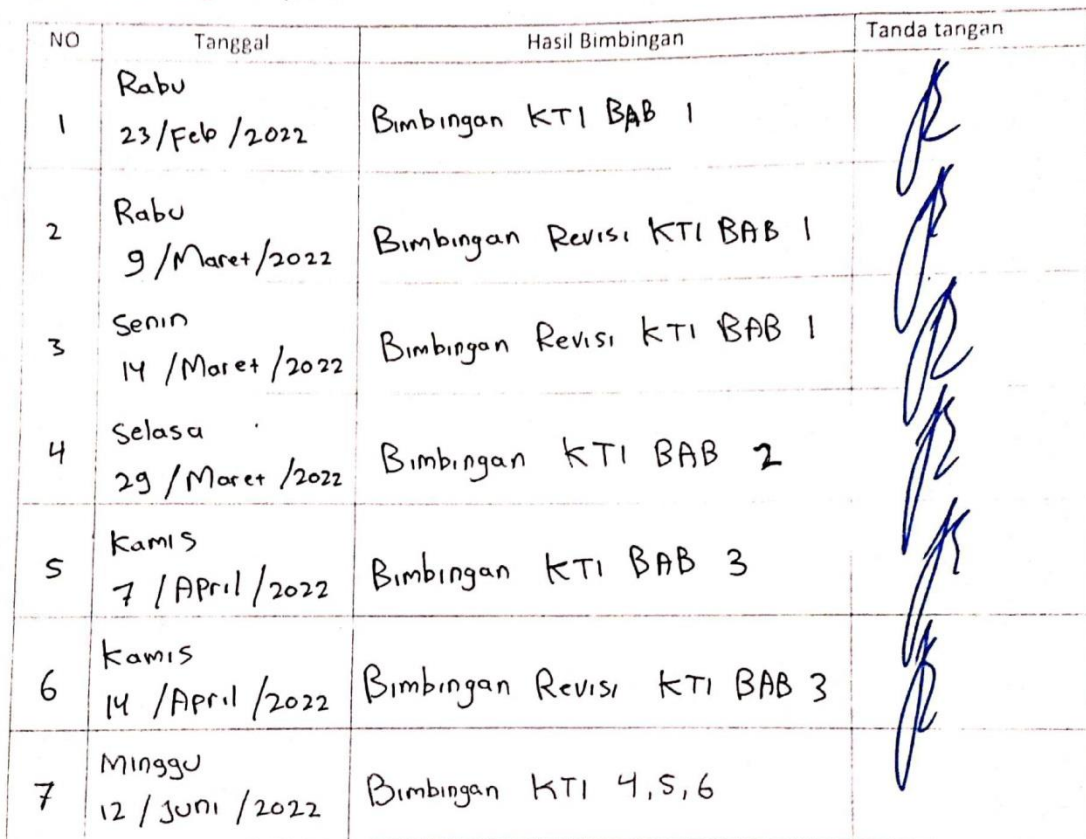 NO Tanggal Hasil Bimbingan Tanda tangan
Rabu
1 23/Feb/2022 Bimbingan KTI BAB 1
Rabu
2 9/Maret/2022 Bimbingan Revisi KTI BAB 1
Senin
3 14/Maret/2022 Bimbingan Revisi KTI BAB 1
Selasa
4 29/Maret/2022 Bimbingan KTI BAB 2
Kamis
5 7/April/2022 Bimbingan KTI BAB 3
Kamis
6 14/April/2022 Bimbingan Revisi KTI BAB 3
Minggu
7 12/Juni/2022 Bimbingan KTI 4,5,6